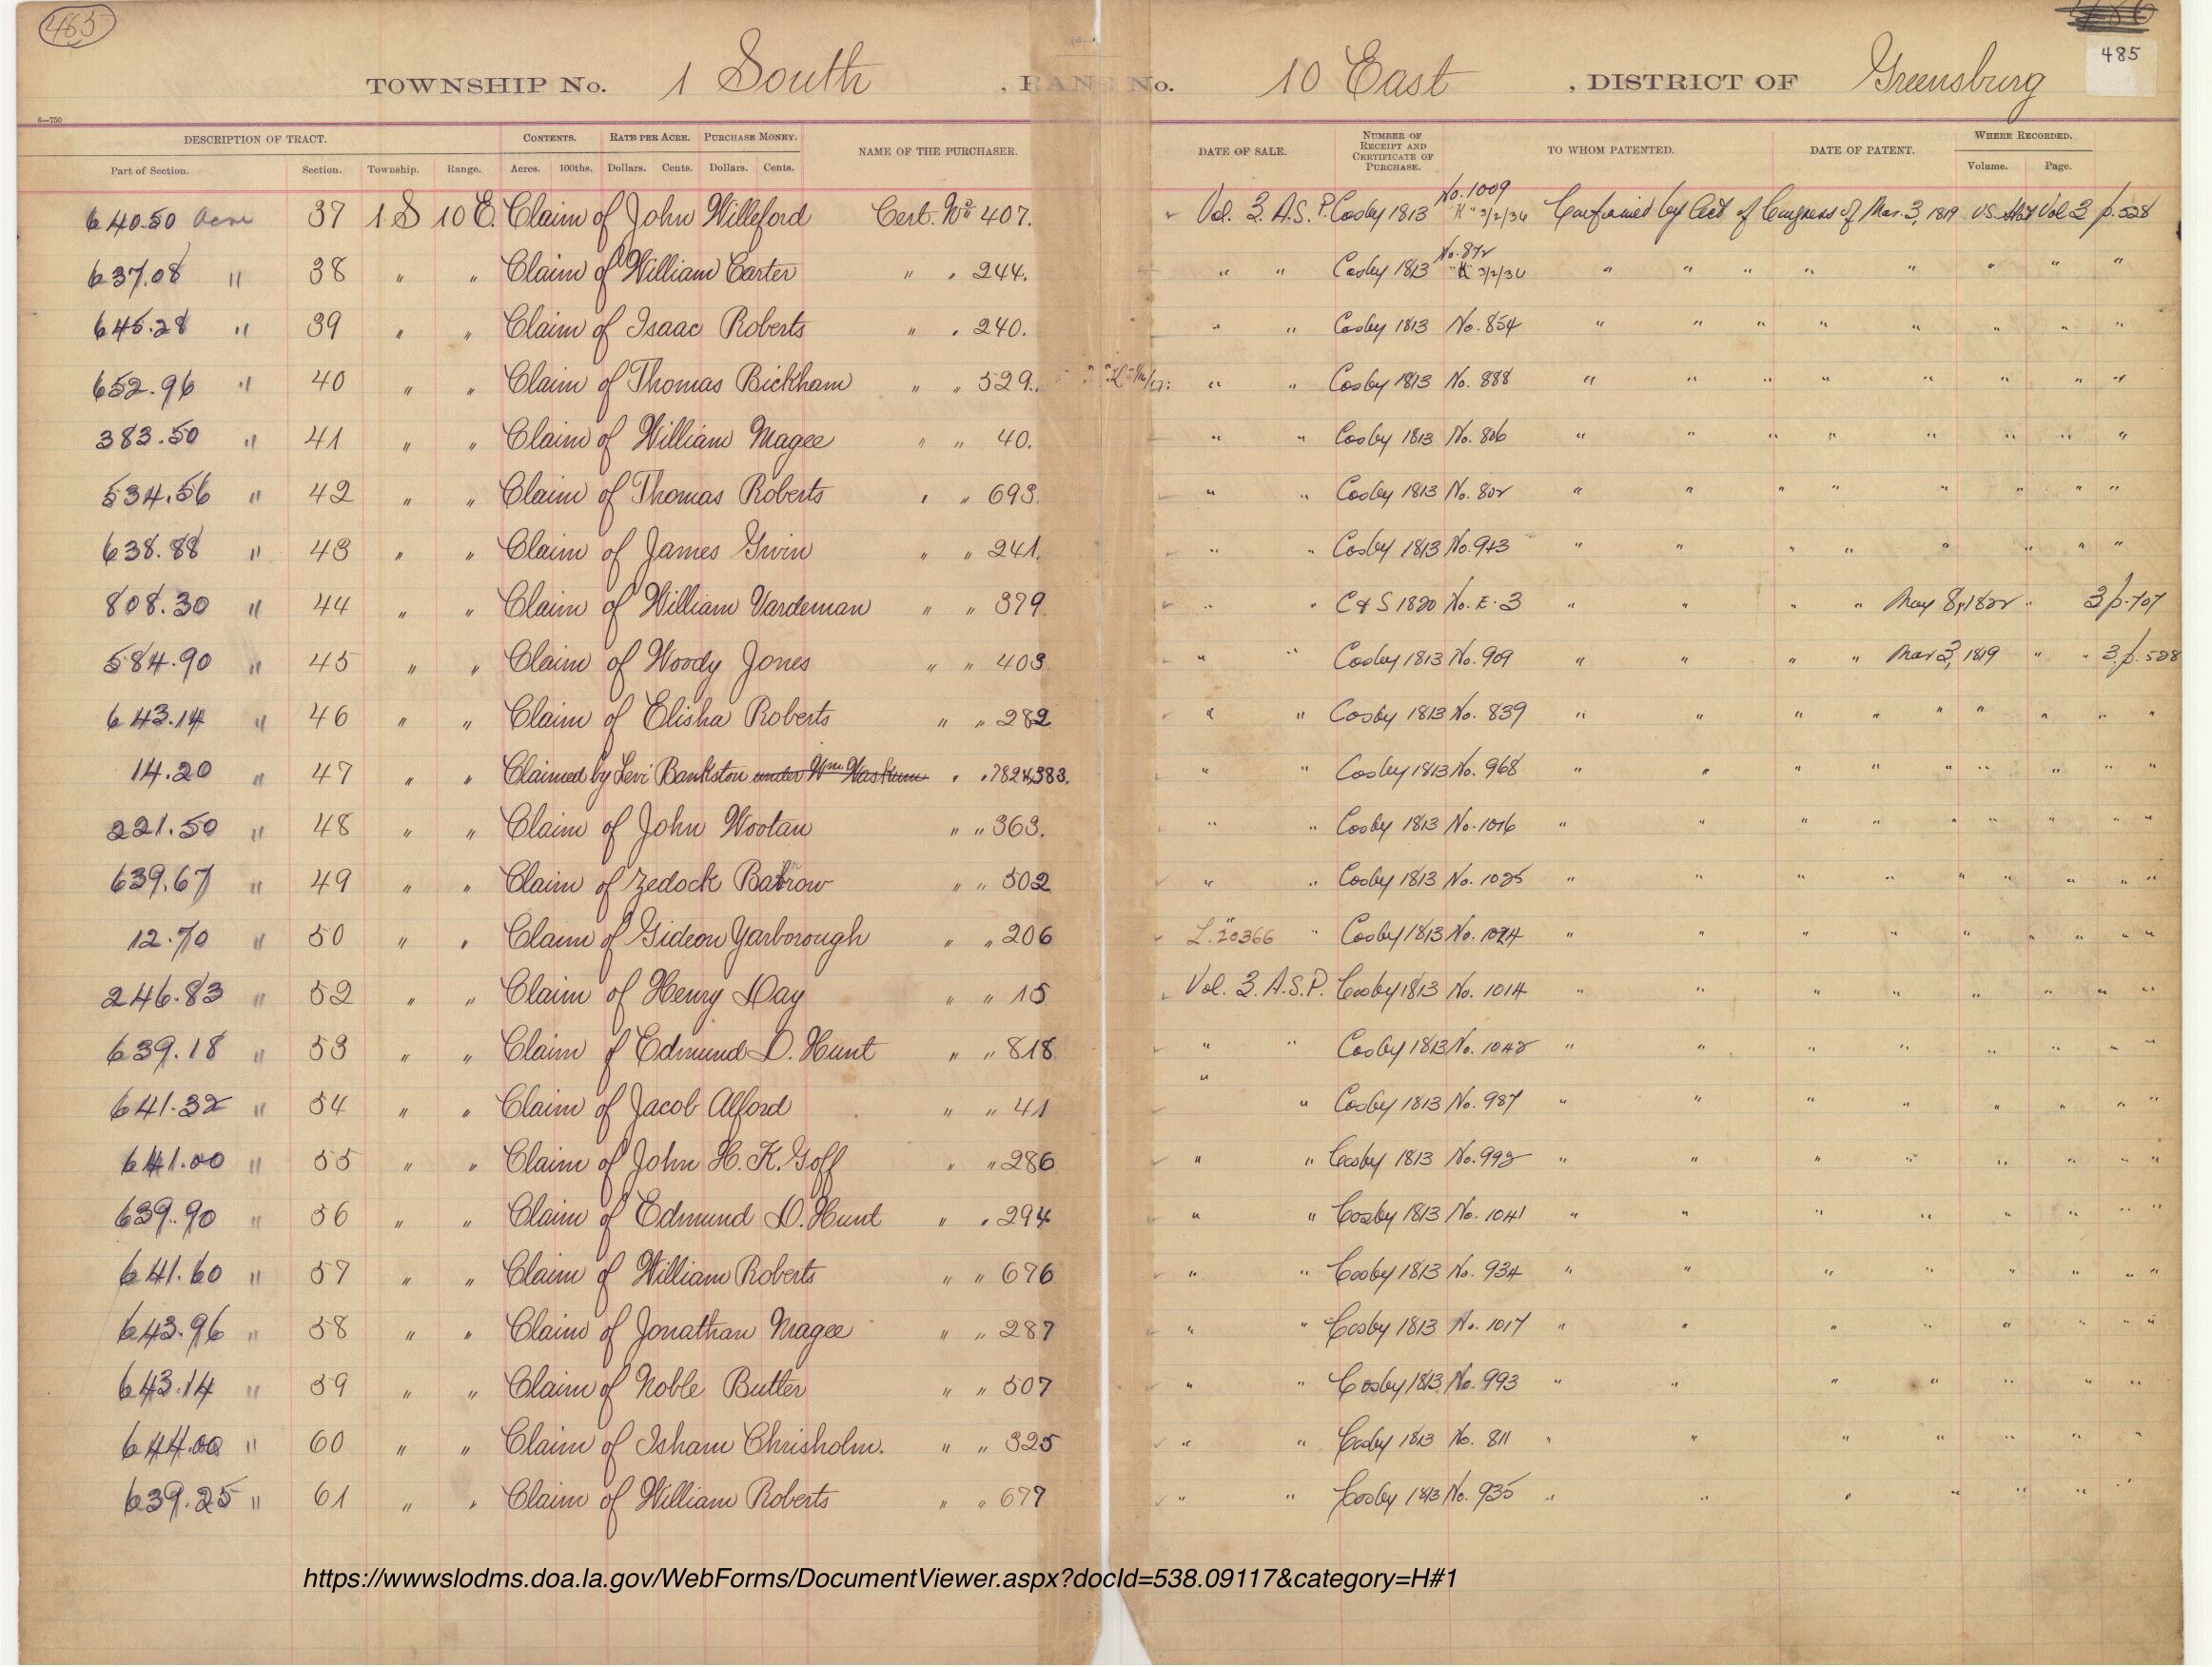 465
485
TOWNSHIP No. 1 South, RANGE No. 10 East, DISTRICT OF Greensburg
6—750
DESCRIPTION OF TRACT. CONTENTS. RATE PER ACRE. PURCHASE MONEY. NAME OF THE PURCHASER. DATE OF SALE. NUMBER OF RECEIPT AND CERTIFICATE OF PURCHASE. TO WHOM PATENTED. DATE OF PATENT. WHERE RECORDED.
Part of Section. Section. Township. Range. Acres. 100ths. Dollars. Cents. Dollars. Cents. Volume. Page.
640.50 Acre 37 1 S 10 E. Claim of John Willeford Cert. No. 407. Vol. 3. A.S.P. Cosby 1813 No. 1009 "K" 3/2/36 Confirmed by Act of Congress of Mar. 3, 1819 US Stat Vol 3 p. 528
637.08 " 38 " " Claim of William Carter " " 244. " " Cosby 1813 No. 872 "K" 3/2/36 " " " " " " " "
645.28 " 39 " " Claim of Isaac Roberts " " 240. " " Cosby 1813 No. 854 " " " " " " " "
652.96 " 40 " " Claim of Thomas Bickham " " 529. " " Cosby 1813 No. 888 " " " " " " " "
383.50 " 41 " " Claim of William Magee " " 40. " " Cosby 1813 No. 806 " " " " " " " "
534.56 " 42 " " Claim of Thomas Roberts " " 693. " " Cosby 1813 No. 802 " " " " " " " "
638.88 " 43 " " Claim of James Gwin " " 241. " " Cosby 1813 No. 943 " " " " " " " "
808.30 " 44 " " Claim of William Vardeman " " 379 " " C & S 1820 No. E. 3 " " " " May 8, 1822 " 3 p. 707
584.90 " 45 " " Claim of Woody Jones " " 403 " " Cosby 1813 No. 909 " " " " Mar 3, 1819 " " 3 p. 528
643.14 " 46 " " Claim of Elisha Roberts " " 282 " " Cosby 1813 No. 839 " " " " " " " "
14.20 " 47 " " Claimed by Levi Bankston under Wm. " " 782 & 383. " " Cosby 1813 No. 968 " " " " " " " "
221.50 " 48 " " Claim of John Wootan " " 363. " " Cosby 1813 No. 1016 " " " " " " " "
639.67 " 49 " " Claim of Zedock " " 502 " " Cosby 1813 No. 1025 " " " " " " " "
12.70 " 50 " " Claim of Gideon Yarborough " " 206 L. "20366 " Cosby 1813 No. 1024 " " " " " " "
246.83 " 52 " " Claim of Henry Day " " 15 Vol. 3. A.S.P. Cosby 1813 No. 1014 " " " " " " " "
639.18 " 53 " " Claim of Edmund D. Hunt " " 818 " " Cosby 1813 No. 1042 " " " " " " " "
641.32 " 54 " " Claim of Jacob Alford " " 41 " " Cosby 1813 No. 987 " " " " " " " "
641.00 " 55 " " Claim of John H. K. Goff " " 286 " " Cosby 1813 No. 992 " " " " " " " "
639.90 " 56 " " Claim of Edmund D. Hunt " " 294 " " Cosby 1813 No. 1041 " " " " " " " "
641.60 " 57 " " Claim of William Roberts " " 676 " " Cosby 1813 No. 934 " " " " " " " "
643.96 " 58 " " Claim of Jonathan Magee " " 287 " " Cosby 1813 No. 1017 " " " " " " " "
643.14 " 59 " " Claim of Noble Butler " " 507 " " Cosby 1813 No. 993 " " " " " " " "
644.00 " 60 " " Claim of Isham Chrisholm. " " 325 " " Cosby 1813 No. 811 " " " " " " "
639.25 " 61 " " Claim of William Roberts " " 677 " " Cosby 1813 No. 935 " " " " " " "
https://wwwslodms.doa.la.gov/WebForms/DocumentViewer.aspx?docId=538.09117&category=H#1